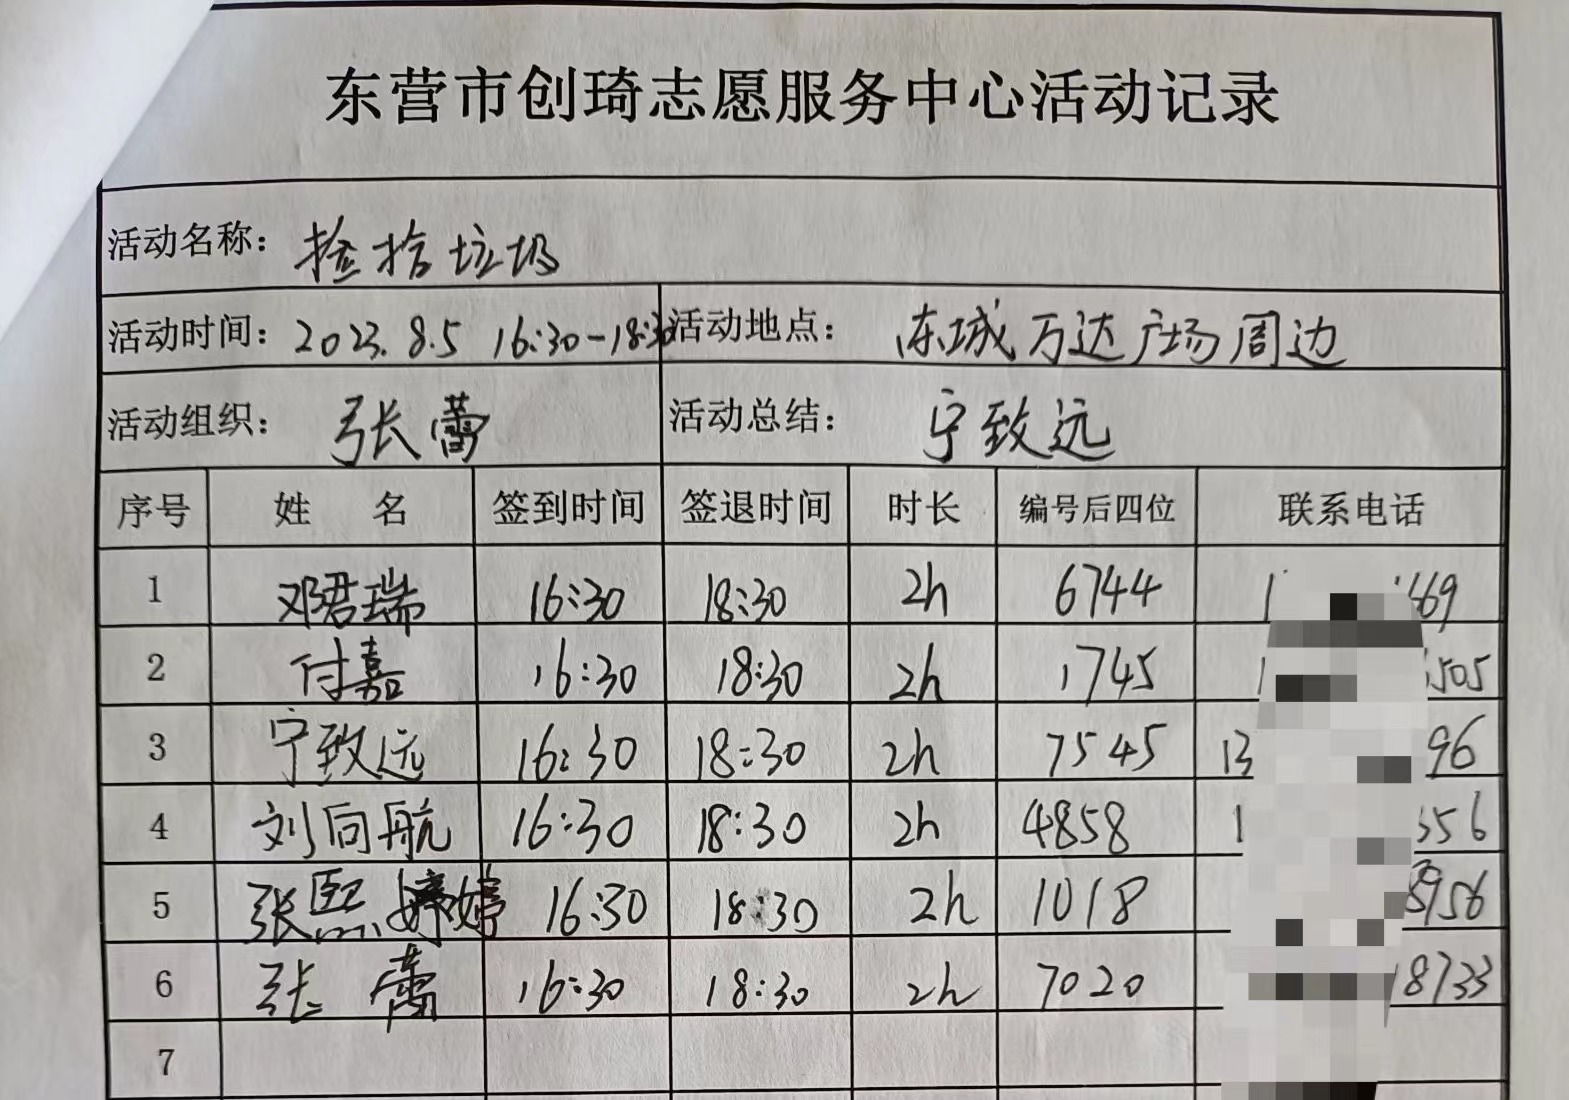 东营市创琦志愿服务中心活动记录
活动名称：捡拾垃圾
活动时间：2023.8.5 16:30-18:30 活动地点：东城万达广场周边
活动组织：张蕾 活动总结：宁致远
序号 姓 名 签到时间 签退时间 时长 编号后四位 联系电话
1 邓君瑞 16:30 18:30 2h 6744 1 669
2 付嘉 16:30 18:30 2h 1745 505
3 宁致远 16:30 18:30 2h 7545 13 96
4 刘向航 16:30 18:30 2h 4858 1 556
5 张熙婷 16:30 18:30 2h 1018 8956
6 张 蕾 16:30 18:30 2h 7020 8733
7